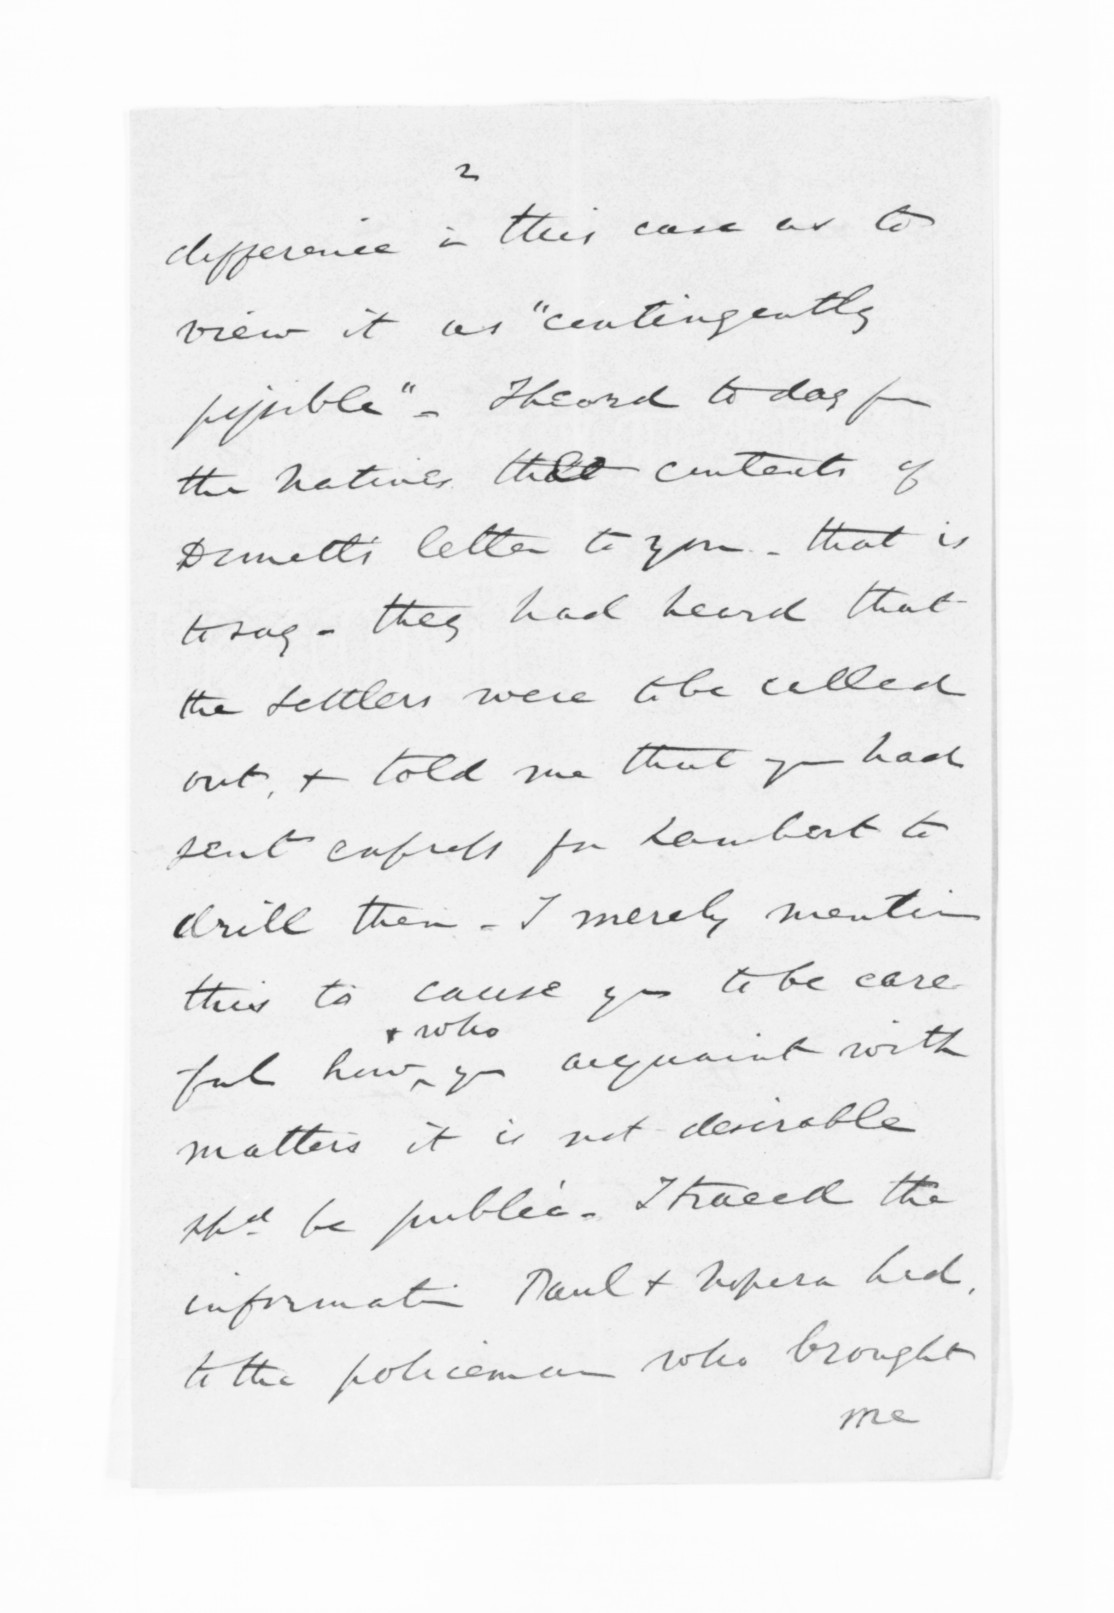 2
difference in this case as to
view it as "contingently
possible" - I heard to day from
the Natives the contents of
letter to you - that is
to say - they had heard that
the settlers were to be called
out, + told me that you had
sent express for Lambert to
drill them - I merely mention
this to cause you to be care
ful how + who you acquaint with
matters it is not desirable
shd be public - I traced the
information Paul + Nopera had,
to the policeman who brought
me